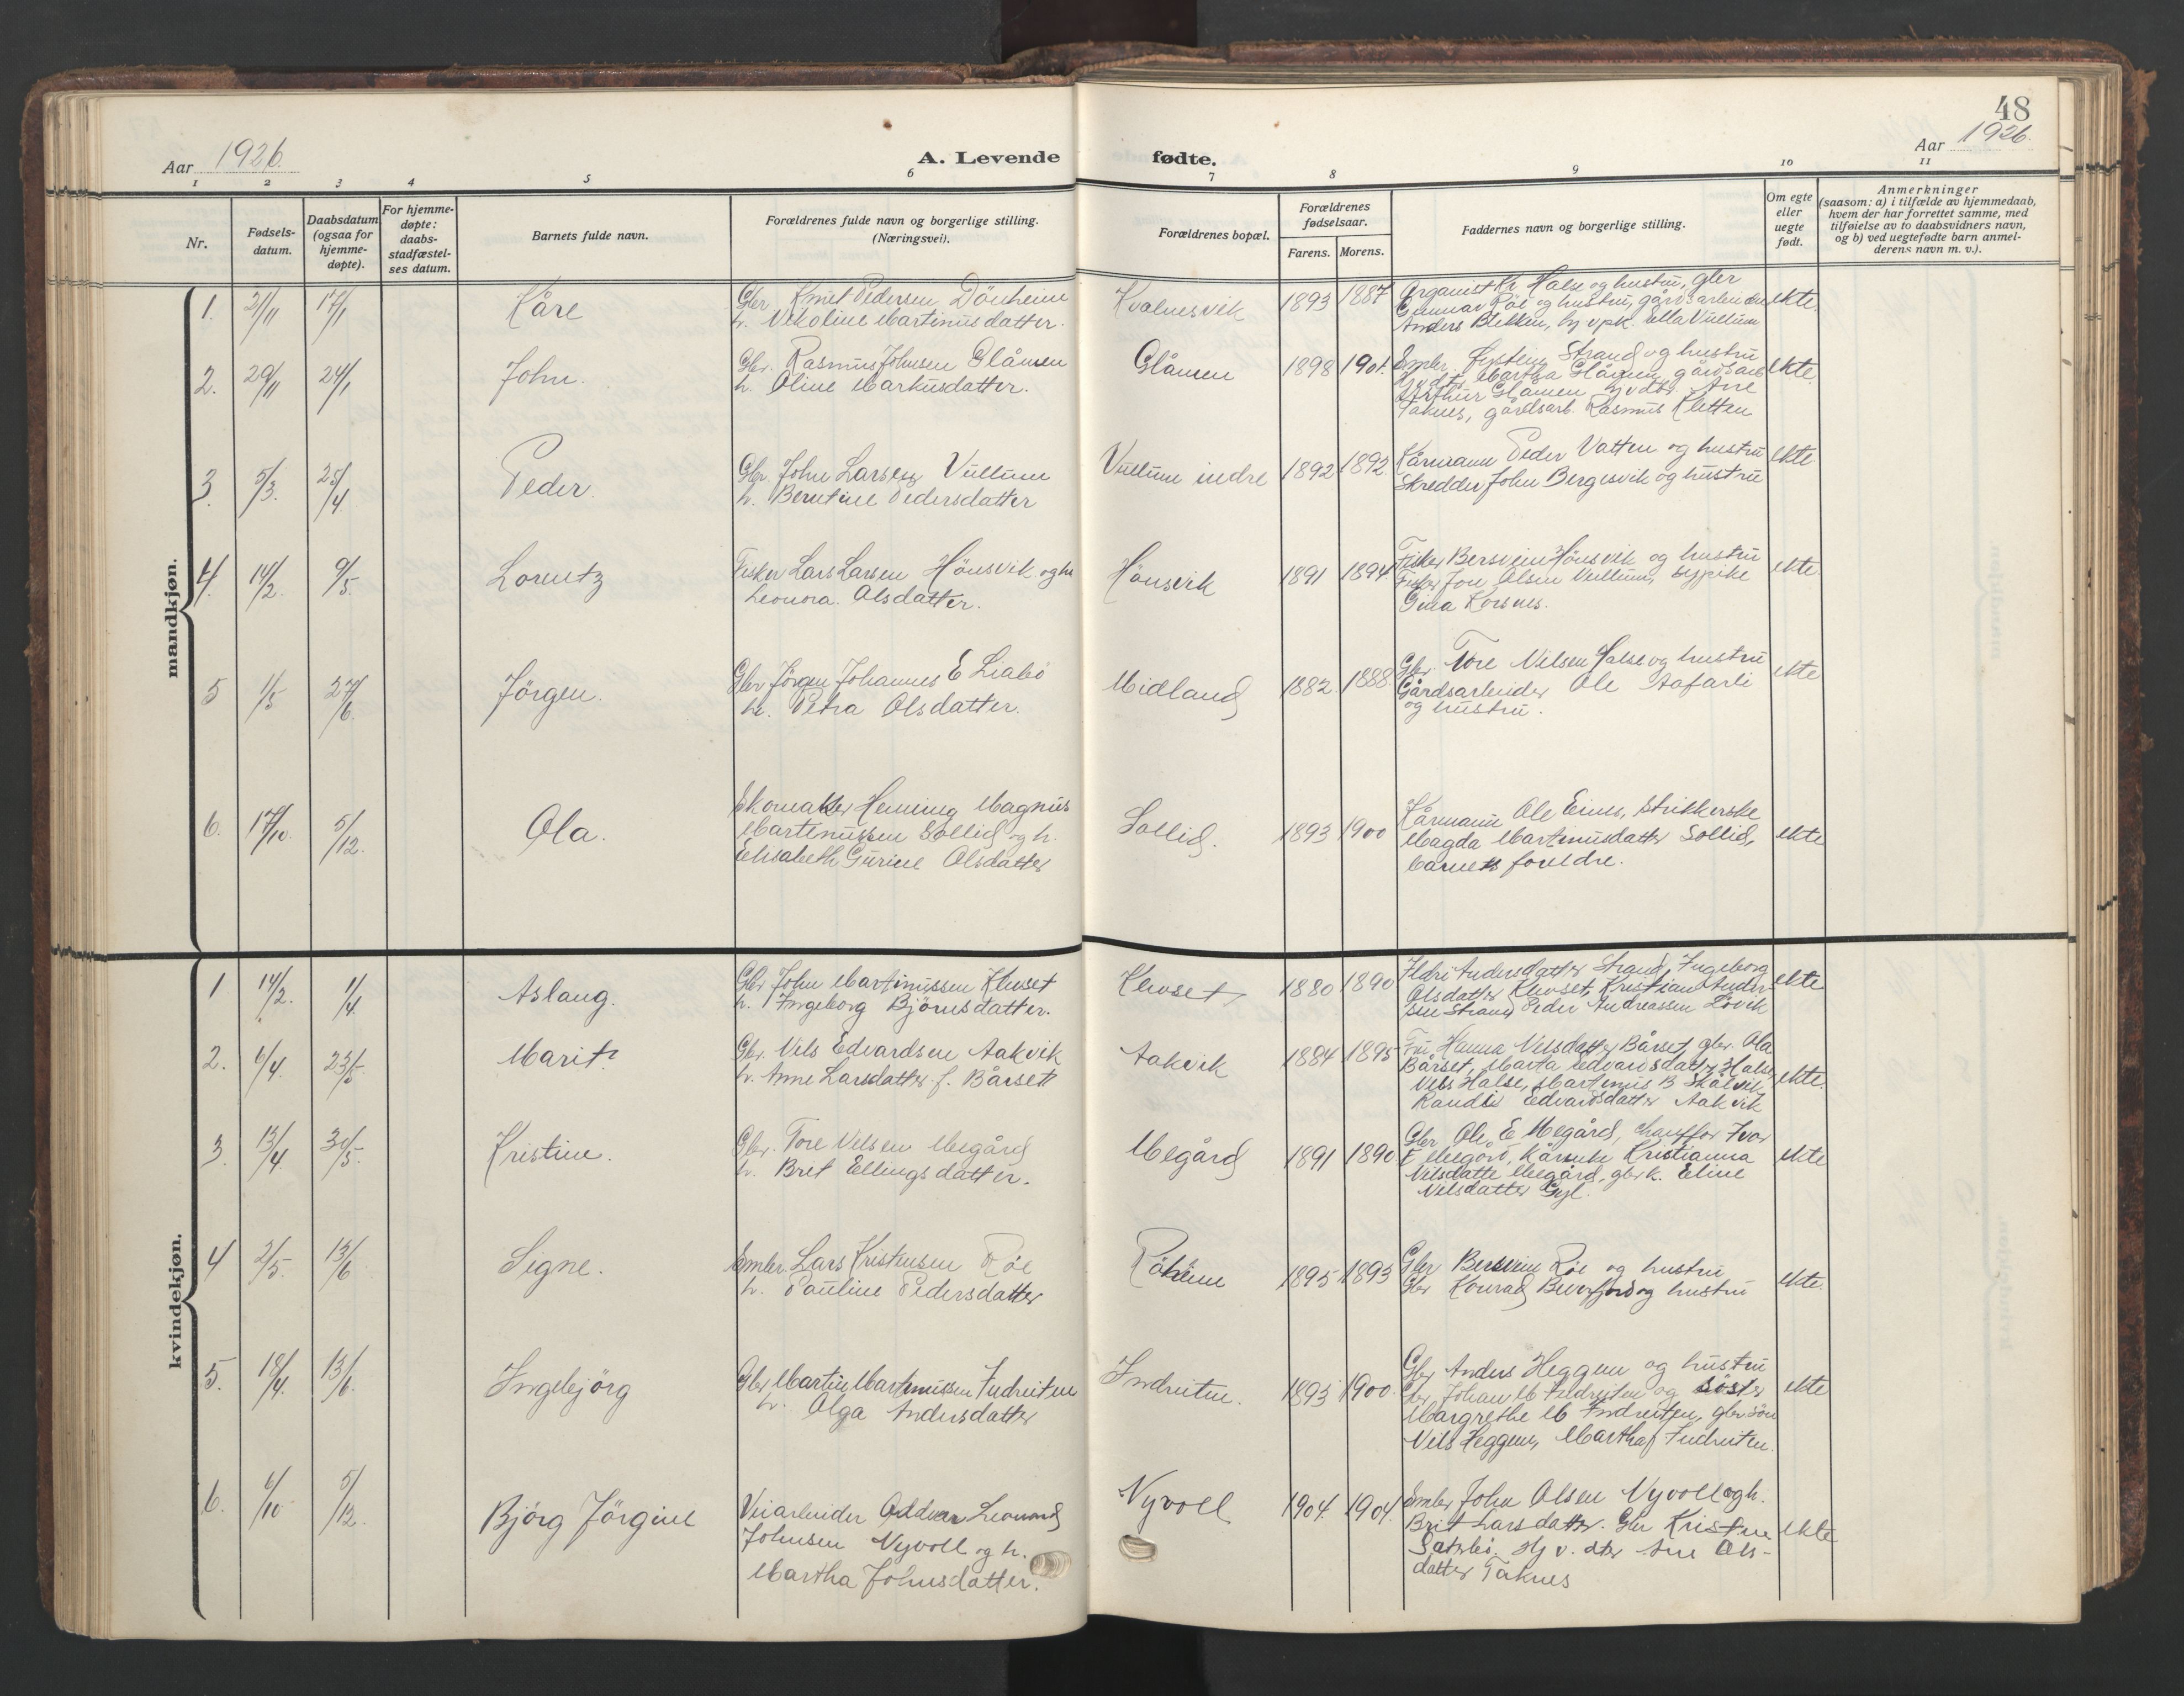 48
Aar 1926.
A. Levende fødte.
Aar 1926.
1 2 3 4 5 6 7 8 9 10 11
Nr.
Fødsels-
datum.
Daabsdatum
(ogsaa for
hjemme-
døpte).
For hjemme-
døpte:
daabs-
stadfæstel-
ses datum.
Barnets fulde navn.
Forældrenes fulde navn og borgerlige stilling.
(Næringsvei).
Forældrenes bopæl.
Forældrenes
fødselsaar.
Farens. Morens.
Faddernes navn og borgerlige stilling.
Om egte
eller
uegte
født.
Anmerkninger
(saasom: a) i tilfælde av hjemmedaab,
hvem der har forrettet samme, med
tilføielse av to daabsvidners navn,
og b) ved uegtefødte barn anmel-
derens navn m. v.).
mandkjøn.
1. 2/11 17/1 Kåre
Gbr Knut Pedersen Dönheim
h. Nikoline Martinusdatter.
Kvalnesvik 1893 1887
Organist Kr Halse og hustru, gbr
Gunnar Röe og hustru, gårdsarbeider
Anders Blekken, Ella Vullum
ekte.
2. 29/11 24/1 John.
Gbr. Rasmus Johnsen Glåmen
h. Oline Markusdatter.
Glåmen 1898 1901.
Strand og hustru
Martha Glåmen, gårdsarb
Arthur Glåmen
Taknes, gårdsarb. Rasmus Kletten
ekte.
3. 5/3. 25/4 Peder.
Gbr. John Larsen Vullum
h. Berntine Pedersdatter
Vullum indre 1892 1892
Kårmann Peder Vatten og hustru
Skredder John Bergesvik og hustru
ekte
4. 14/2. 9/5. Lorentz
Fisker Lars Larsen Hönsvik og hu
Leonora Olsdatter.
Hönsvik 1891 1894
Fisker Bersvein Hönsvik og hustru
Fisker Tore Olsen Vullum,
Gina Korsnes.
ekte.
5 1/5 27/6. Jörgen.
Gbr Jörgen Johannes E Liabö
h. Petra Olsdatter.
Midland 1882. 1888
Gbr. Tore Nilsen Halse og hustru
Gårdsarbeider Ole Aafarli
og hustru.
ekte
6. 17/10. 5/12. Ola.
Skomaker Heming Magnus
Martinussen Sollid og h.
Elisabeth Gurine Olsdatter
Sollid. 1893 1900
Kårmann Ole Eines, Strikkerske
Magda Martinusdatter Sollid,
barnets foreldre.
ekte
kvindekjøn.
1 14/2. 1/4 Aslaug.
Gbr John Martinussen Klevset
h. Ingeborg Björnsdatter.
Klevset 1880 1890
Ildri Andersdatter Strand, Ingeborg
Olsdatter Klevset, Kristian Ander-
sen Strand Peder Andreassen Lövik
ekte
2. 6/4. 23/5. Marit
Gbr. Nils Edvardsen Aakvik
h. Anne Larsdatter f. Bårset
Aakvik 1884 1895
Fru Hanna Nilsdatter Bårset, gbr. Ola
Bårset, Marta Edvardsdatter Halse,
Nils Halse, Martinus B Skålvik
Randi Edvardsdatter Aakvik
ekte.
3. 13/4. 30/5. Kristine.
Gbr. Tore Nilsen Megård
h. Brit Ellingsdatter.
Megård 1891 1890
Gbr Ole E Megård, chauffør Ivar
E Megård, Kristianna
Nilsdatter Megård, gbrk. Eline
Nilsdatter Gyl.
ekte
4 2/5. 13/6 Signe.
Lars Kristensen Röe
h. Pauline Pedersdatter
Röheim 1895 1893
Gbr Bersvein Röe og hustru
Gbr Konrad Beverfjord og hustru
ekte.
5. 18/4. 13/6. Ingebjörg
Gbr Martin Martinussen Indreiten
h. Olga Andersdatter
Indreiten. 1893 1900.
Gbr Anders Heggem og hustru
Gbr Johan M Indreiten og söster
Margrethe M Indreiten, gbrsön
Nils Heggem, Martha Indreiten.
ekte
6. 6/10 5/12. Bjórg Jörgine
Veiarbeider Oddvar Leonard
Johnsen Nyvoll og h.
Martha Johnsdatter.
Nyvoll 1904. 1904.
John Olsen Nyvoll og h.
Brit Larsdatter. Gbr Kristen
Sæterbö. Ane Ols-
datter Taknes
ekte